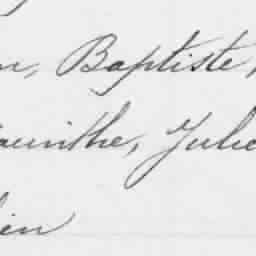 n, Baptiste,
acinthe, Julie
lien